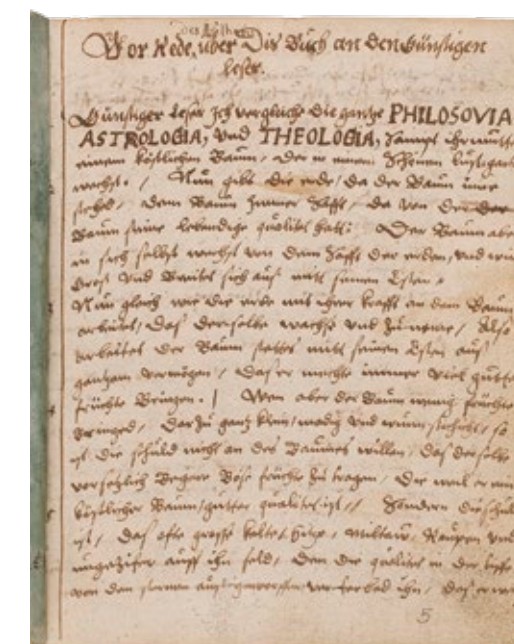 des Authoris
Vor Rede, über Dis Buch an den Günstigen
leser.
Günstiger Leser Ich vergleiche die gantze PHILOSOVIA
ASTROLOGIA, und THEOLOGIA, sampt ihr mutter
einem köstlichen Baum, Der in einem schönen lustgart
wechst. / Nun gibt die erde, da der Baum inne
stehed, dem Baum immer safft, da von der
Baum seine lebendige qualitet hatt: Der Baum aber
in sich selbst wechst von dem safft der erden, und wird
gros und breitet sich aus mitt seinen Esten.
Nun gleich wie die erde mit ihrer krafft an dem Baum
arbeitet, das derselbe wachse und zuneme, Also
arbeitet der Baum stettes mitt seinen Esten aus
gantzem vermögen, das er möchte immer viel gutte
früchte bringen. / Wen aber der Baum wenig früchte
bringed, dar zu gantz klein, madig und wurmstichicht, so
ist die schuld nicht an des Baumes willen, das derselbe
vorsetzlich begere böse früchte zu tragen, die weil er ein
köstlicher Baum, gutter qualitet ist, / Sondern die schuld
ist, das ofte grosse kelte, hitze, miltaw, Raupen und
ungezifer auff ihn feld, den die qualitet in der tiffe
von den sternen ausgeworffen verterbed ihn, das er we
5